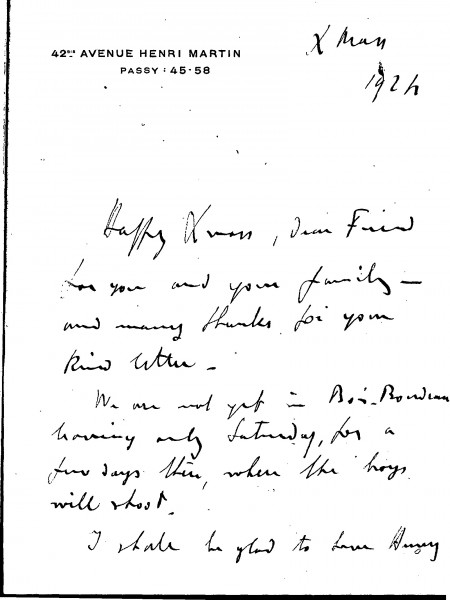 42BIS AVENUE HENRI MARTIN
PASSY : 45-58
X Mass
1924
Happy Xmass, dear Friend
for you and your family –
and many thanks for your
kind letter –
We are not yet in Bois-Boudran
leaving only Saturday, for a
few days there, where the boys
will shoot.
I shall be glad to have